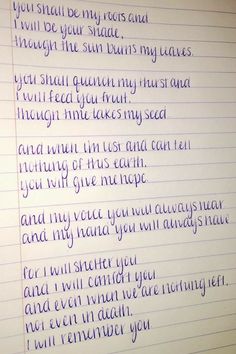 you shall be my roots and
I will be your shade,
though the sun burns my leaves.

you shall quench my thirst and
I will feed you fruit,
though time takes my seed.

and when I'm lost and can tell
nothing of this earth.
you will give me hope.

and my voice you will always hear.
and my hand you will always have.

for I will shelter you
and I will comfort you
and even when we are nothing left.
not even in death,
I will remember you